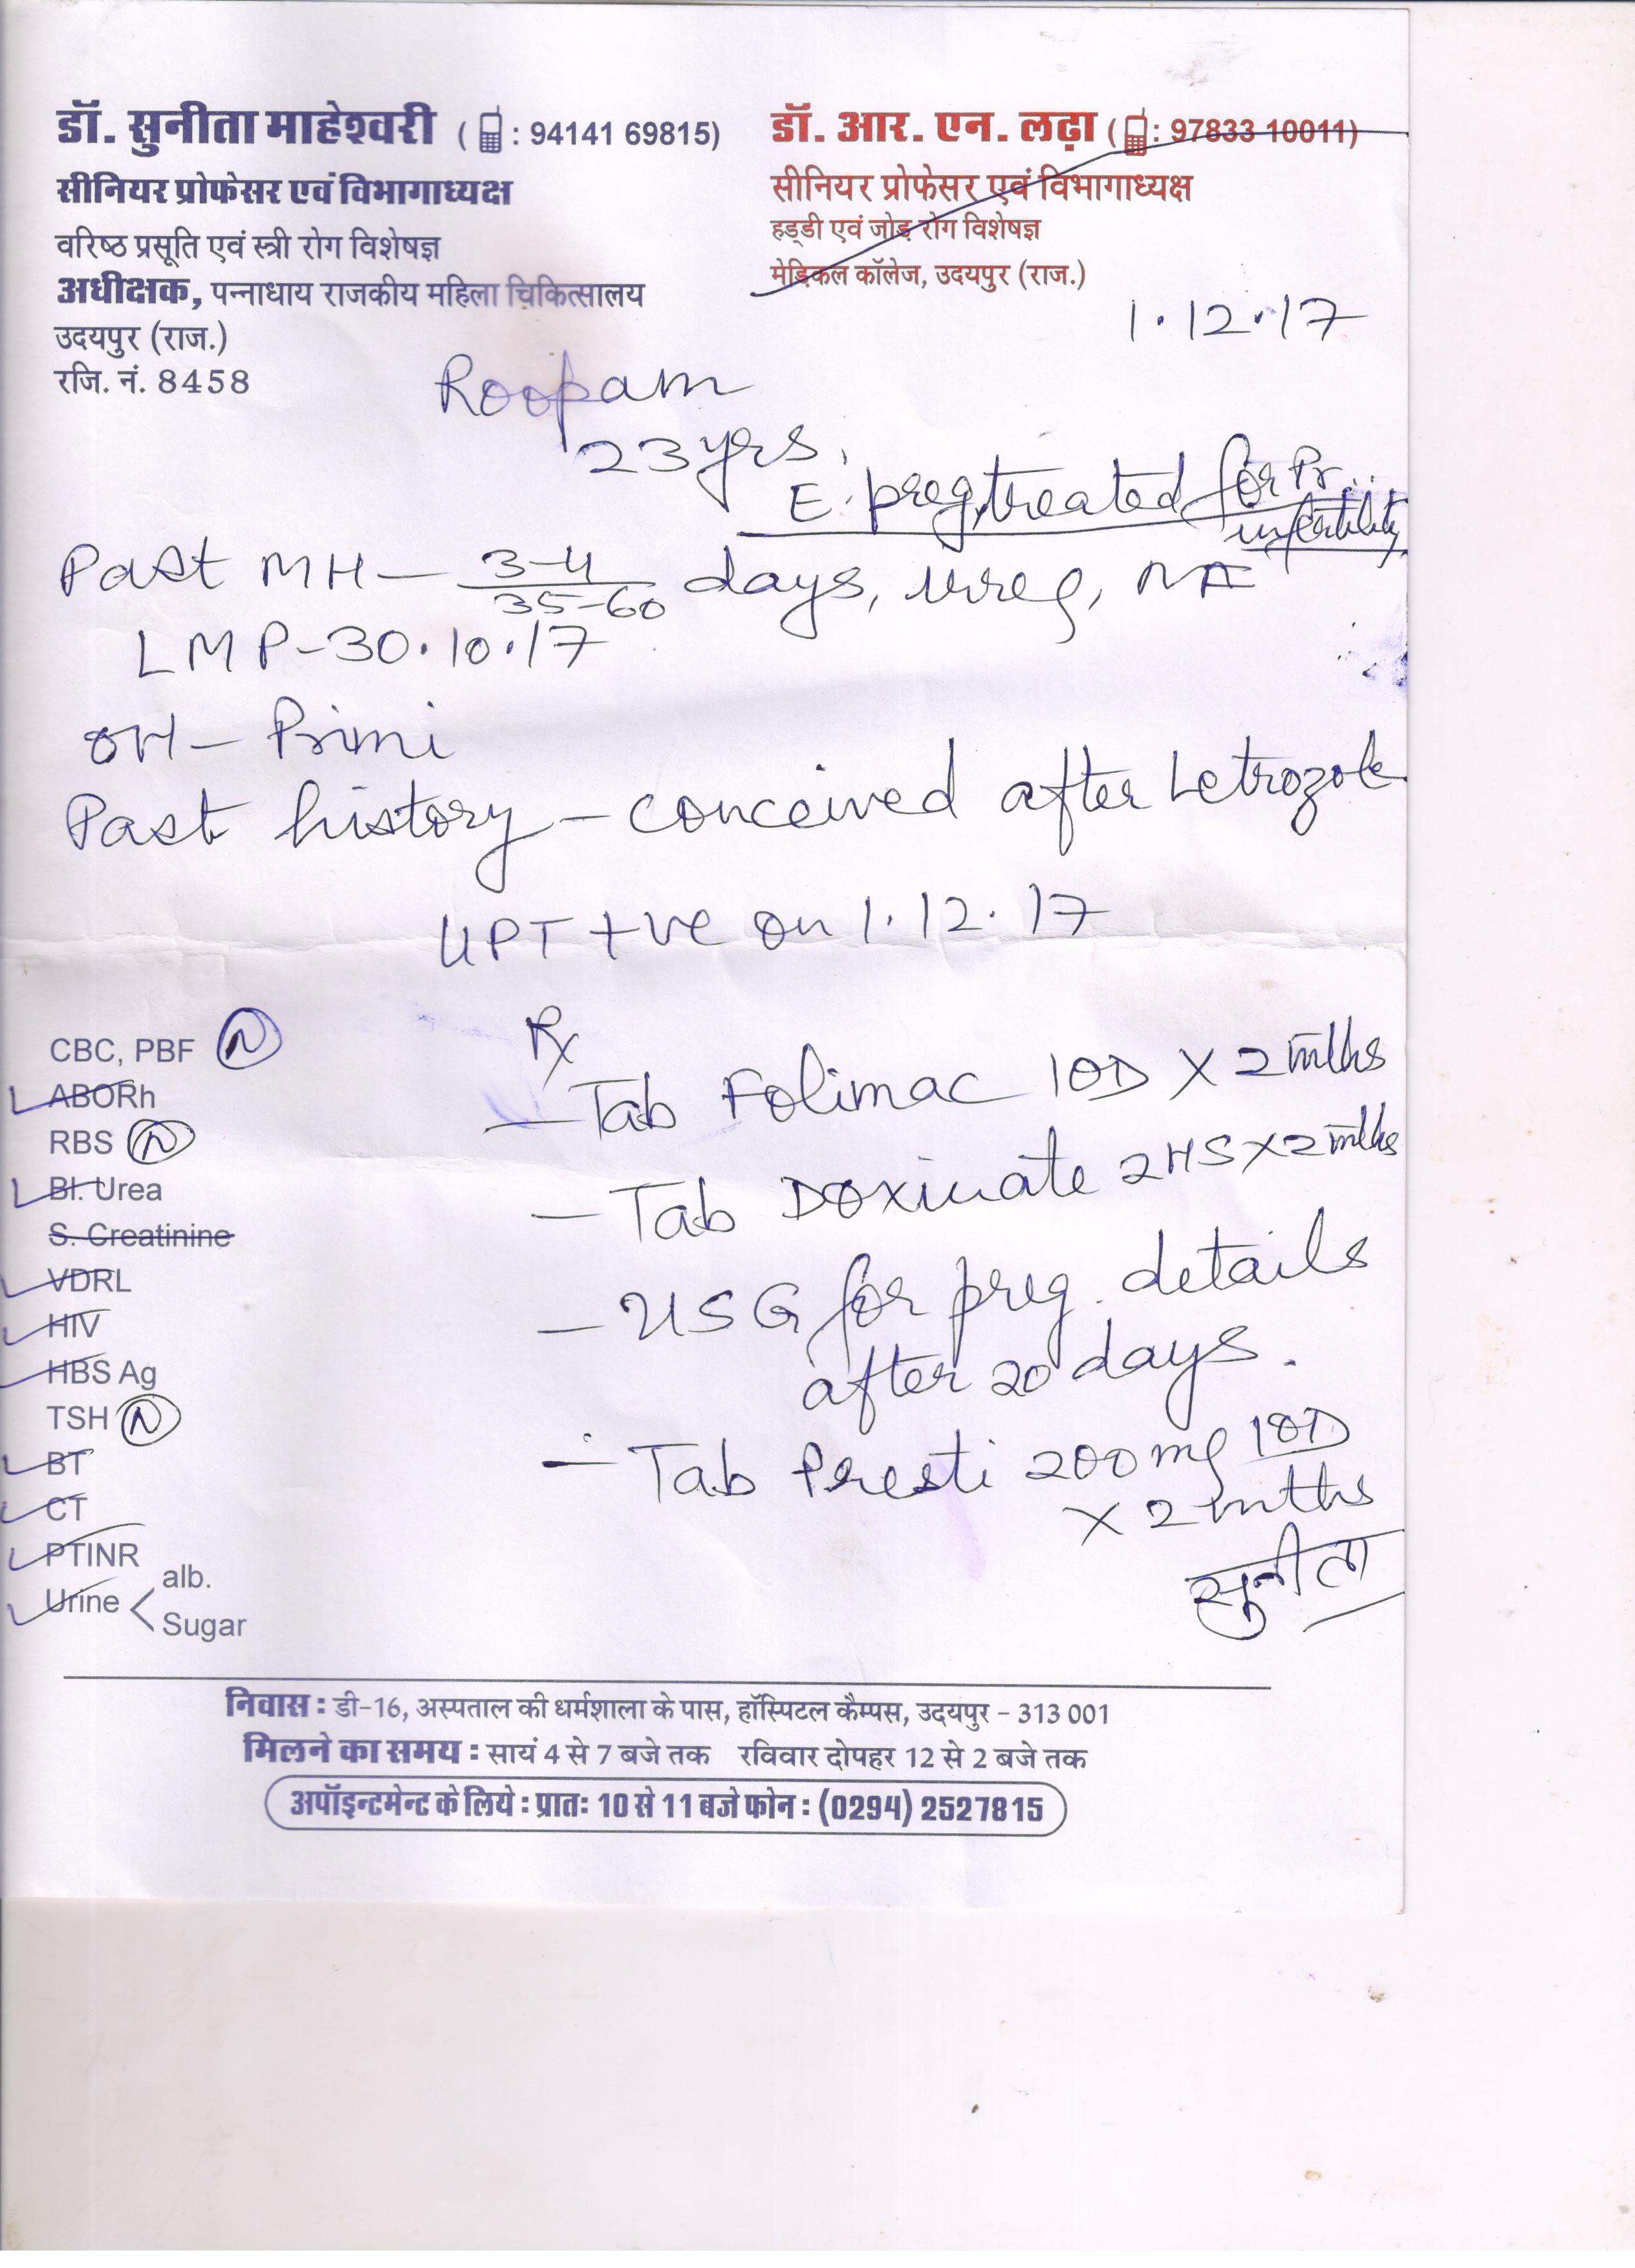 डॉ. सुनीता माहेश्वरी ( : 94141 69815)
सीनियर प्रोफेसर एवं विभागाध्यक्ष
वरिष्ठ प्रसूति एवं स्त्री रोग विशेषज्ञ
अधीक्षक, पन्नाधाय राजकीय महिला चिकित्सालय
उदयपुर (राज.)
रजि. नं. 8458
डॉ. आर. एन. लढ़ा ( : 97833 10011)
सीनियर प्रोफेसर एवं विभागाध्यक्ष
हड्डी एवं जोड़ रोग विशेषज्ञ
मेडिकल कॉलेज, उदयपुर (राज.)
1.12.17
Roopam
23 yrs.
E. preg, treated for Pr...
infertility
Past MH - 3-4/35-60 days, irreg, NA
LMP - 30.10.17
OH - Primi
Past history - conceived after Letrozole
UPT +ve on 1.12.17
CBC, PBF N
ABORh
RBS N
Bl. Urea
S. Creatinine
VDRL
HIV
HBS Ag
TSH N
BT
CT
PTINR
Urine < alb.
Sugar
Rx
- Tab Folimac 1OD X 2 mths
- Tab Doxinate 2HS X 2 mths
- USG for preg. details
after 20 days.
- Tab Presti 200mg 1OD
X 2 mths
सुनीता
निवास : डी-16, अस्पताल की धर्मशाला के पास, हॉस्पिटल कैम्पस, उदयपुर - 313 001
मिलने का समय : सायं 4 से 7 बजे तक रविवार दोपहर 12 से 2 बजे तक
अपॉइन्टमेन्ट के लिये : प्रातः 10 से 11 बजे फोन : (0294) 2527815